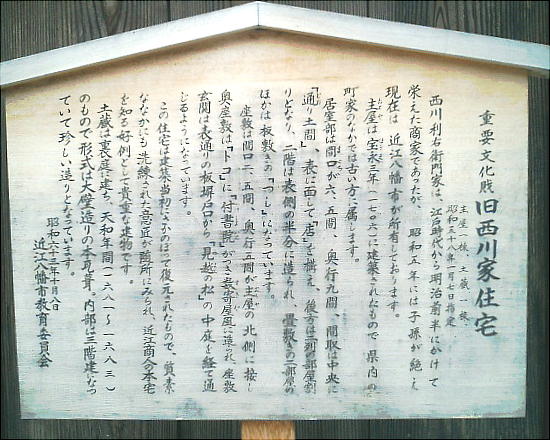 重要文化財 旧西川家住宅
主屋一棟、土蔵一棟
昭和五十八年一月七日指定
西川利右衛門家は、江戸時代から明治前半にかけて
栄えた商家であったが、昭和五年には子孫が絶え
現在は、近江八幡市が所有しております。
主屋は宝永三年(一七〇六)に建築されたもので、県内の
町家のなかでは古い方に属します。
居室部は間口が六、五間、奥行九間、間取は中央に
「通り土間」、表に面して「店」を構え、後方は三列の部屋割
りとなり、二階は表側の半分に造られ、畳敷きの一部屋の
ほかは板敷きの「つし」になっています。
座敷は間口二、五間、奥行五間が主屋の北側に接し
奥座敷は「トコ」に「付書院」がつき数寄屋風に造られ、座敷
玄関は表通りの板塀口から「見越の松」の中庭を経て通
じるようになっています。
この住宅は建築当初にさかのぼって復元されたもので、質素
ななかにも洗練された意匠が随所にみられ、近江商人の本宅
を知る好例として貴重な建物です。
土蔵は裏庭に建ち、天和年間(一六八一〜一六八三)
のもので形式は大壁造りの本瓦葺、内部は三階建になっ
ていて珍しい造りとなっています。
昭和六十三年十月八日
近江八幡市教育委員会